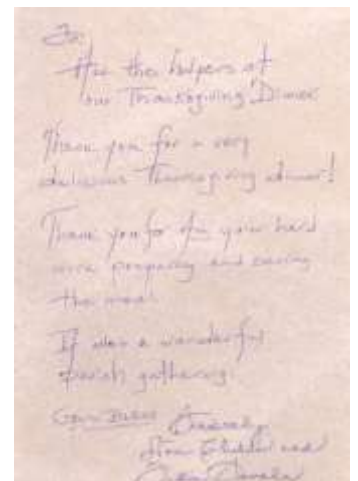 To:
All the helpers at
our Thanksgiving Dinner
Thank you for a very
delicious Thanksgiving dinner!
Thank you for all your hard
work preparing and serving
the meal.
It was a wonderful
parish gathering.
God Bless Sincerely,
and